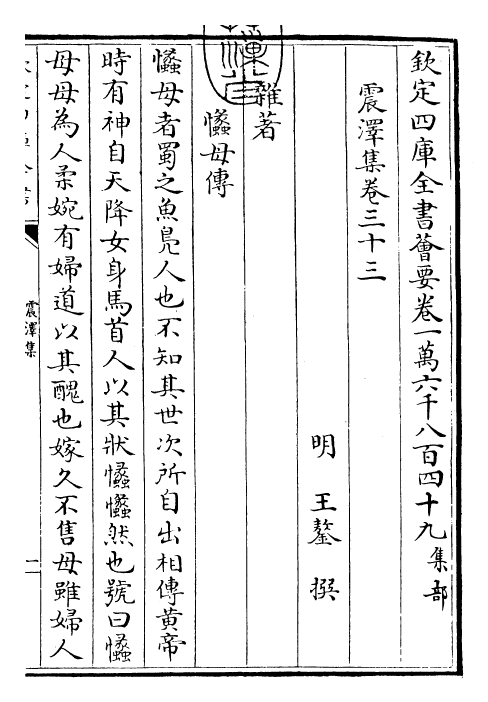 欽定四庫全書薈要卷一萬六千八百四十九 集部
震澤集卷三十三
明 王鏊 撰
雜著
母傳
母者蜀之魚鳧人也不知其世次所自出相傳黃帝
時有神自天降女身馬首人以其狀然也號曰
母母為人柔婉有婦道以其醜也嫁久不售母雖婦人
震澤集